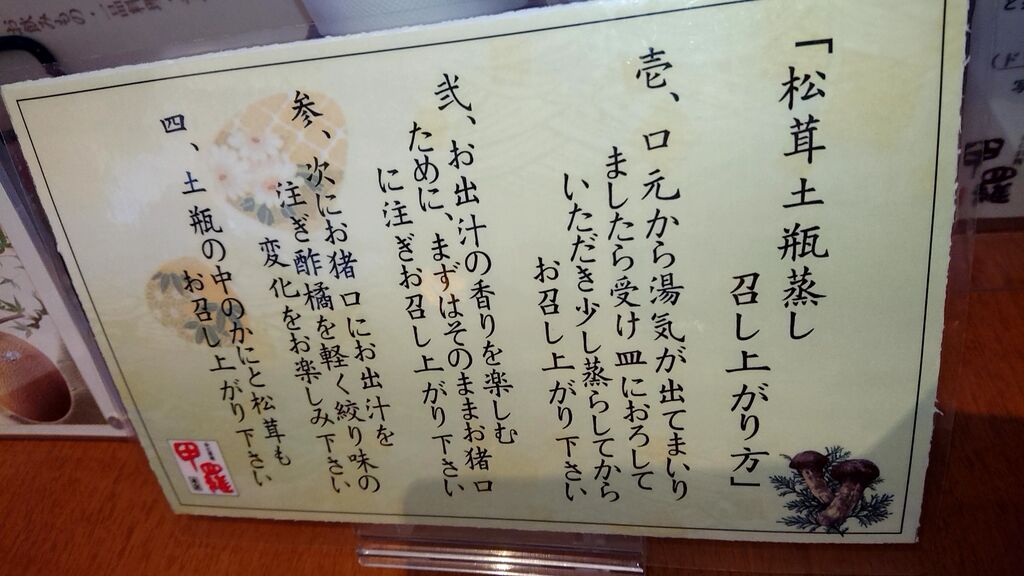 「松茸土瓶蒸し
召し上がり方」
壱、口元から湯気が出てまいり
ましたら受け皿におろして
いただき少し蒸らしてから
お召し上がり下さい
弐、お出汁の香りを楽しむ
ために、まずはそのままお猪口
に注ぎお召し上がり下さい
参、次にお猪口にお出汁を
注ぎ酢橘を軽く絞り味の
変化をお楽しみ下さい
四、土瓶の中のかにと松茸も
お召し上がり下さい
甲羅
甲羅